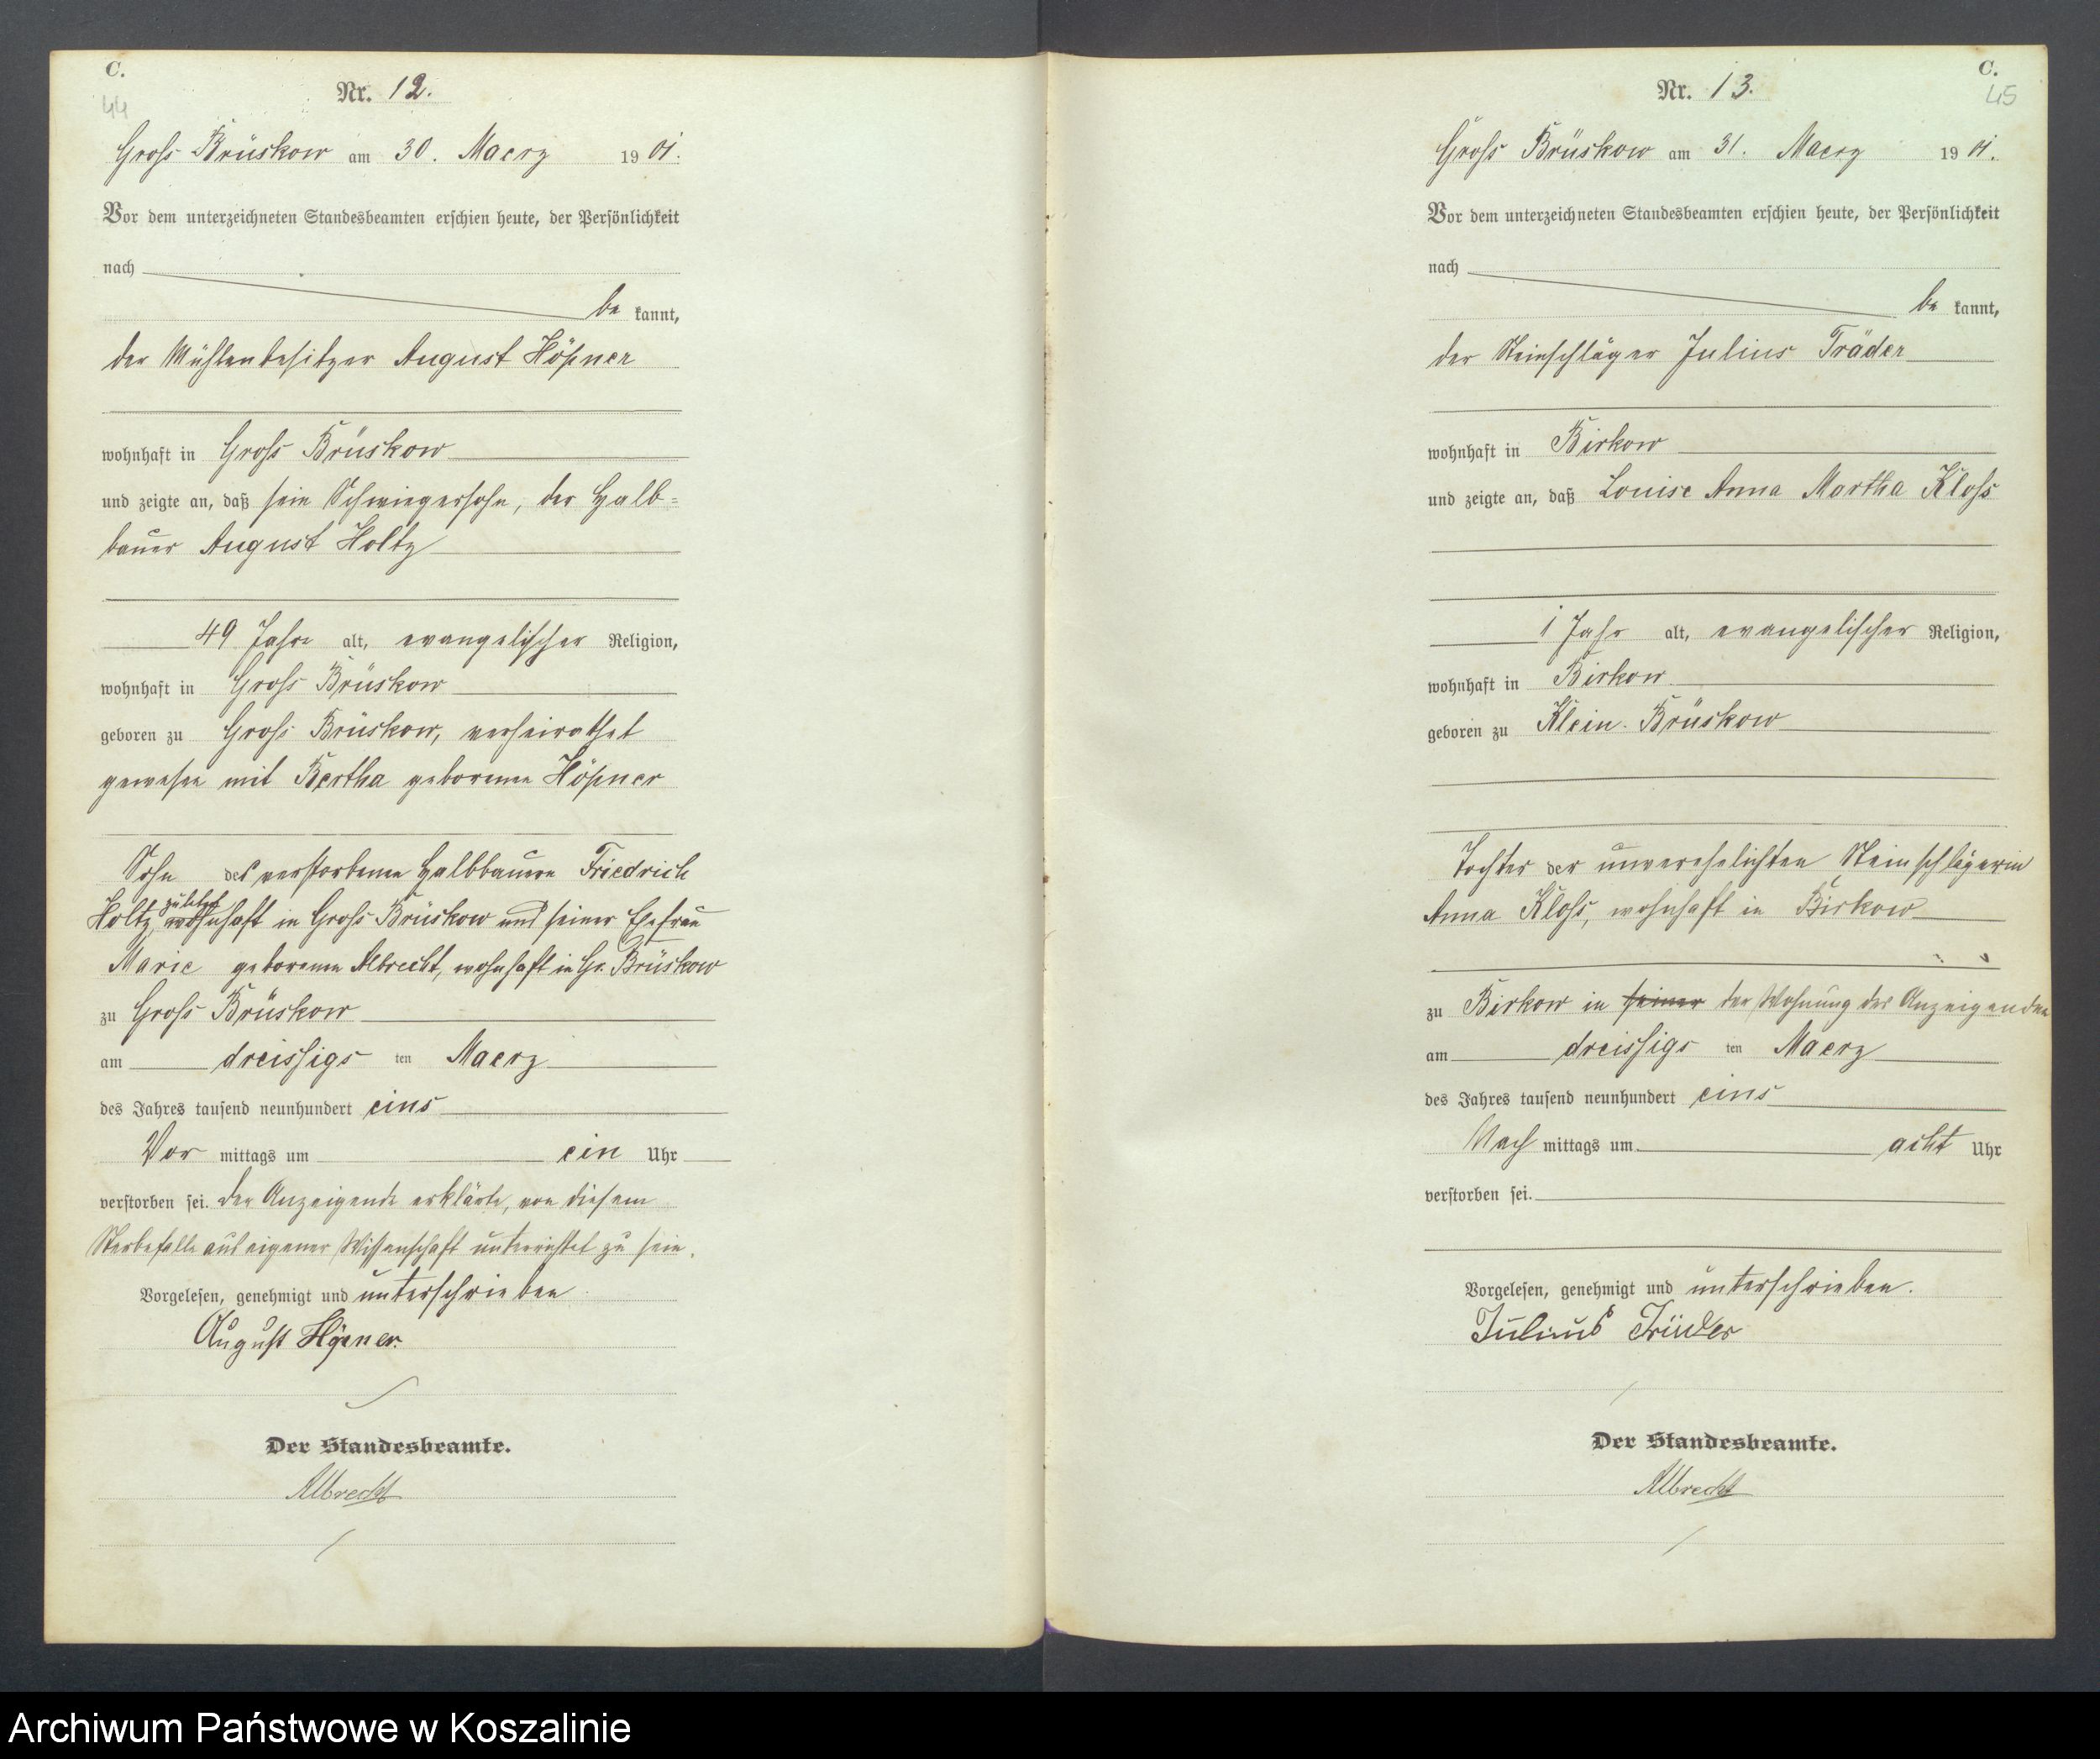 C.
44
Nr. 12.
Gross Brüskow am 30. Maerz 1901.
Vor dem unterzeichneten Standesbeamten erschien heute, der Persönlichkeit
nach
be kannt,
der Mühlenbesitzer August Höpner
wohnhaft in Gross Brüskow
und zeigte an, daß sein Schwiegersohn, der Halb=
bauer August Holtz
49 Jahre alt, evangelischer Religion,
wohnhaft in Gross Brüskow
geboren zu Gross Brüskow, verheirathet
gewesen mit Bertha geborenen Höpner
Sohn des verstorbenen Halbbauern Friedrich
Holtz, zuletzt wohnhaft in Gross Brüskow und seiner Ehefrau
Marie geborenen Albrecht, wohnhaft in Gr. Brüskow
zu Gross Brüskow
am dreissigs ten Maerz
des Jahres tausend neunhundert eins
Vor mittags um ein Uhr
verstorben sei. Der Anzeigende erklärte, von diesem
Sterbefalle aus eigener Wissenschaft unterrichtet zu sein.
Vorgelesen, genehmigt und unterschrieben
August Höpner.
Der Standesbeamte.
Albrecht
C.
45
Nr. 13.
Gross Brüskow am 31. Maerz 1901.
Vor dem unterzeichneten Standesbeamten erschien heute, der Persönlichkeit
nach
be kannt,
der Steinschläger Julius Träder
wohnhaft in Birkow
und zeigte an, daß Louise Anna Martha Kloss
1 Jahr alt, evangelischer Religion,
wohnhaft in Birkow
geboren zu Klein Brüskow
Tochter der unverehelichten Steinschlägerin
Anna Kloss, wohnhaft in Birkow
zu Birkow in seiner der Wohnung des Anzeigenden
am dreissigs ten Maerz
des Jahres tausend neunhundert eins
Nach mittags um acht Uhr
verstorben sei.
Vorgelesen, genehmigt und unterschrieben.
Julius Träder
Der Standesbeamte.
Albrecht
Archiwum Państwowe w Koszalinie